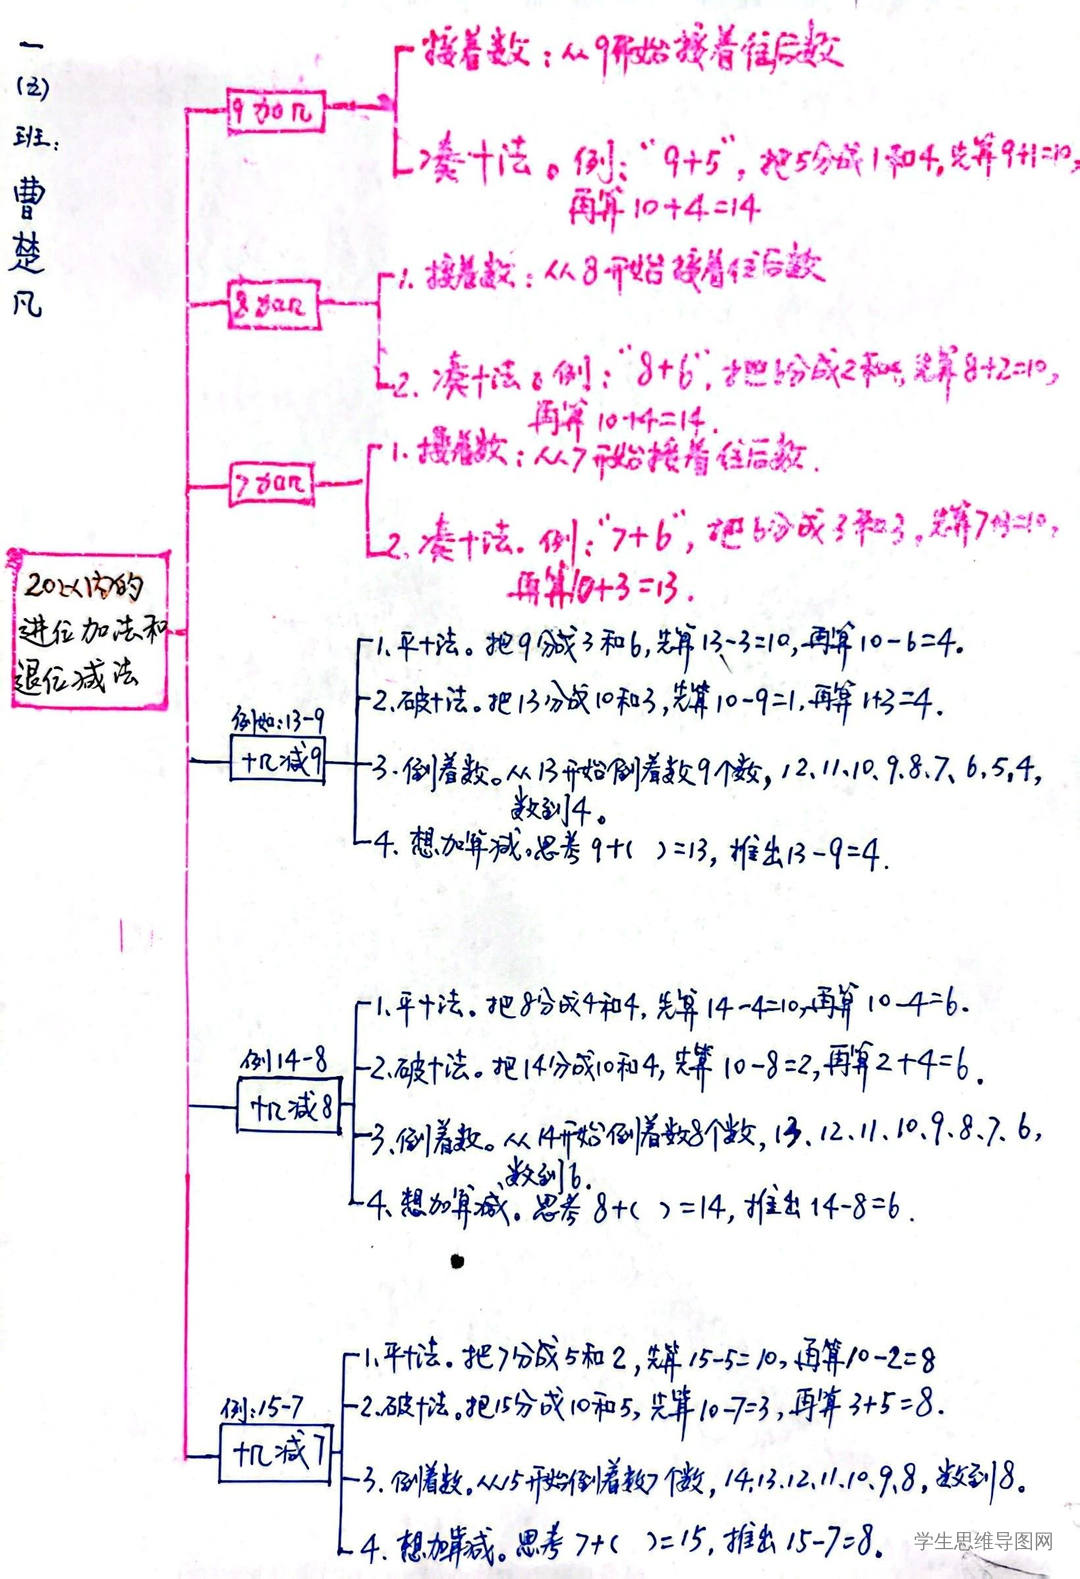 一(2)班:曹楚凡
9加几
接着数:从9开始接着往后数
凑十法。例:“9+5”,把5分成1和4,先算9+1=10,
再算10+4=14
8加几
1.接着数:从8开始接着往后数
2.凑十法。例:“8+6”,把6分成2和4,先算8+2=10,
再算10+4=14.
7加几
1.接着数:从7开始接着往后数.
2.凑十法.例:“7+6”,把6分成3和3,先算7+3=10,
再算10+3=13.
20以内的
进位加法和
退位减法
例如:13-9
十几减9
1.平十法。把9分成3和6,先算13-3=10,再算10-6=4。
2.破十法。把13分成10和3,先算10-9=1,再算1+3=4.
3.倒着数。从13开始倒着数9个数,12、11、10、9、8、7、6、5、4,
数到4。
4、想加算减。思考9+( )=13,推出13-9=4.
例14-8
十几减8
1.平十法。把8分成4和4,先算14-4=10,再算10-4=6.
2.破十法。把14分成10和4,先算10-8=2,再算2+4=6.
3.倒着数。从14开始倒着数8个数,13、12、11、10、9、8、7、6,
数到6.
4、想加算减。思考8+( )=14,推出14-8=6.
例:15-7
十几减7
1.平十法。把7分成5和2,先算15-5=10,再算10-2=8
2.破十法。把15分成10和5,先算10-7=3,再算3+5=8.
3.倒着数。从15开始倒着数7个数,14、13、12、11、10、9、8,数到8。
4.想加算减。思考7+( )=15,推出15-7=8。
学生思维导图网